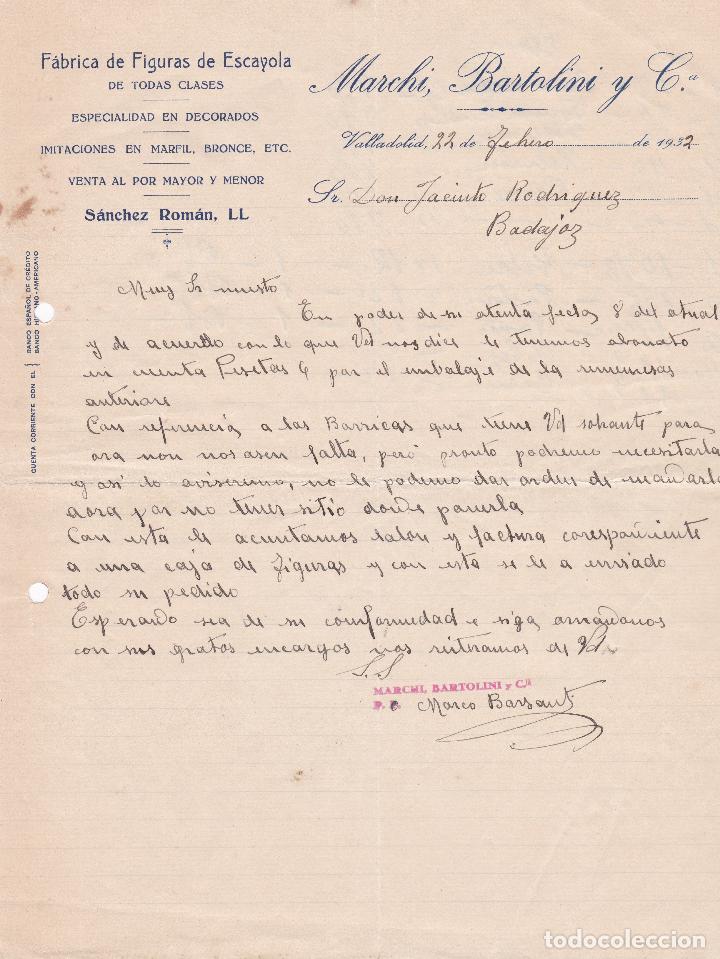 Fábrica de Figuras de Escayola
DE TODAS CLASES
ESPECIALIDAD EN DECORADOS
IMITACIONES EN MARFIL, BRONCE, ETC.
VENTA AL POR MAYOR Y MENOR
Sánchez Román, LL
CUENTA CORRIENTE CON EL
BANCO ESPAÑOL DE CRÉDITO
BANCO HI NO-AMERICANO
Marchi, Bartolini y C.ª
Valladolid, 22 de Febrero de 1932
Sr. Don Jacinto Rodriguez
Badajoz
Muy Sr nuestro
En poder de su atenta fecha 8 del atual
y de acuerdo con lo que Vd nos dice le tenemos abonato
en cuenta Pesetas 6 por el embalaje de la
anteriore
Con referencia a las Barricas que tiene Vd para
ora non nos asen falta, però pronto podremo necesitarla
y así lo aviseremo, no le podemo dar orden de mandarla
aora por no tener sitio donde ponerla
Con esta le acuntamos talon y factura
a una caja de figuras y con esta se le a enviado
todo su pedido
Esperando sea de su comformedad e siga
con sus gratos encargos nos de Vd
S.S
MARCHI, BARTOLINI y C.ª
P. P. Marco Barsanti
todocoleccion